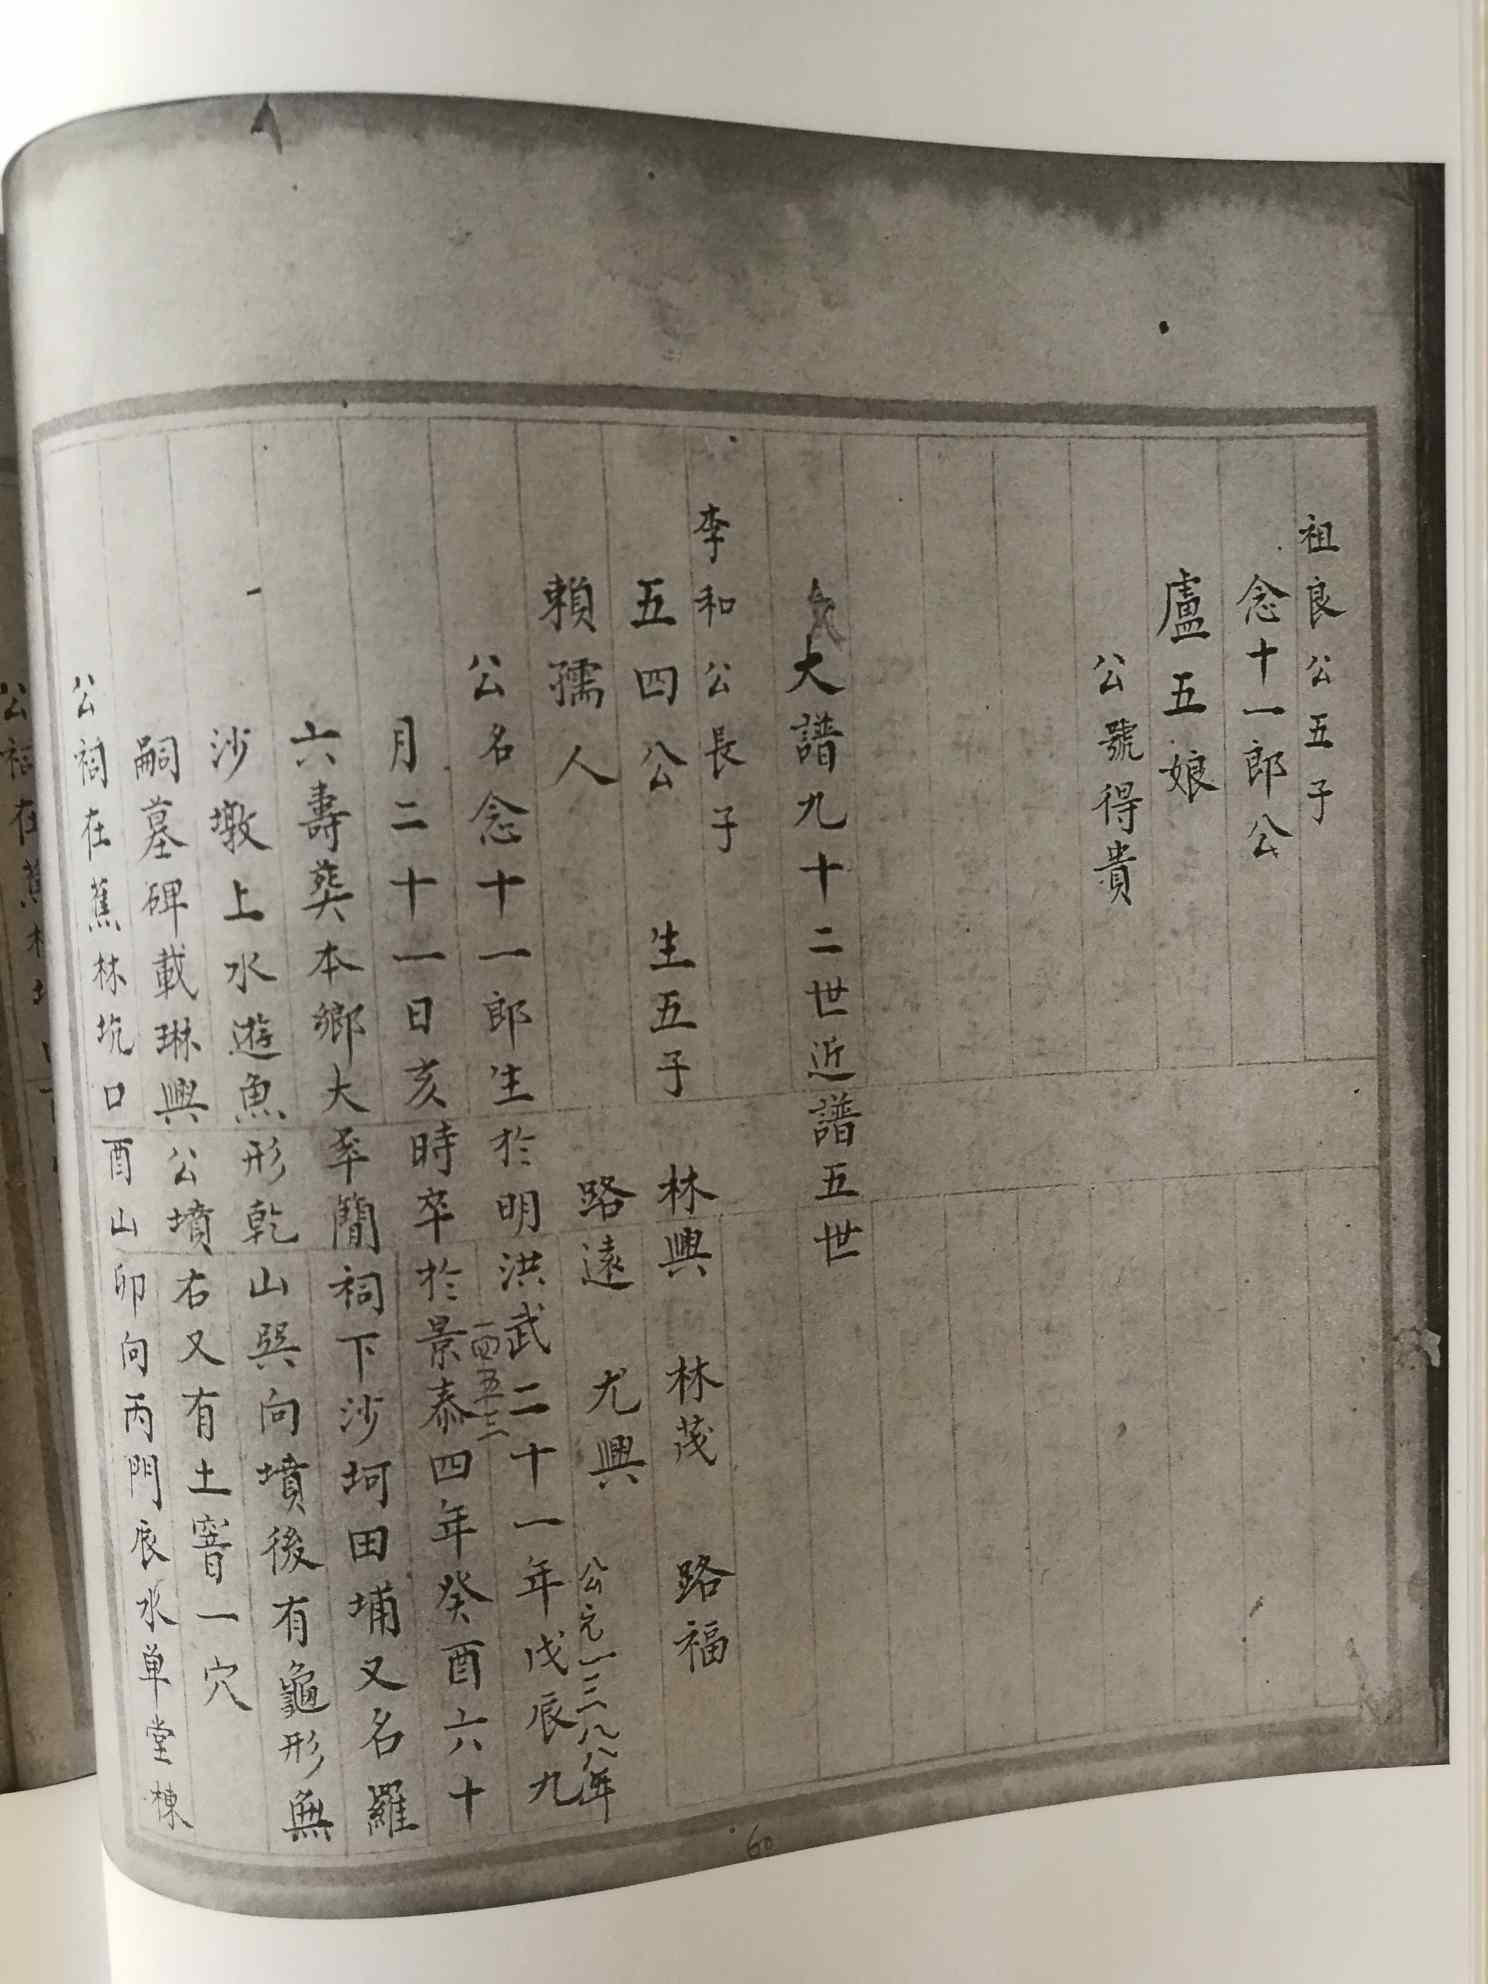 祖良公五子
念十一郎公
盧五娘
公號得貴
大譜九十二世近譜五世
李和公長子
五四公 生五子 林興 林茂 路福
賴孺人 路遠 尤興
公元一三八八年
公名念十一郎生於明洪武二十一年戊辰九
一四五三
月二十一日亥時卒於景泰四年癸酉六十
六壽葬本鄉大平簡祠下沙坷田埔又名羅
沙墩上水遊魚形乾山巽向墳後有龜形無
嗣墓碑載琳興公墳右又有土窨一穴
公祠在蕉林坑口酉山卯向丙門辰水单堂棟
60